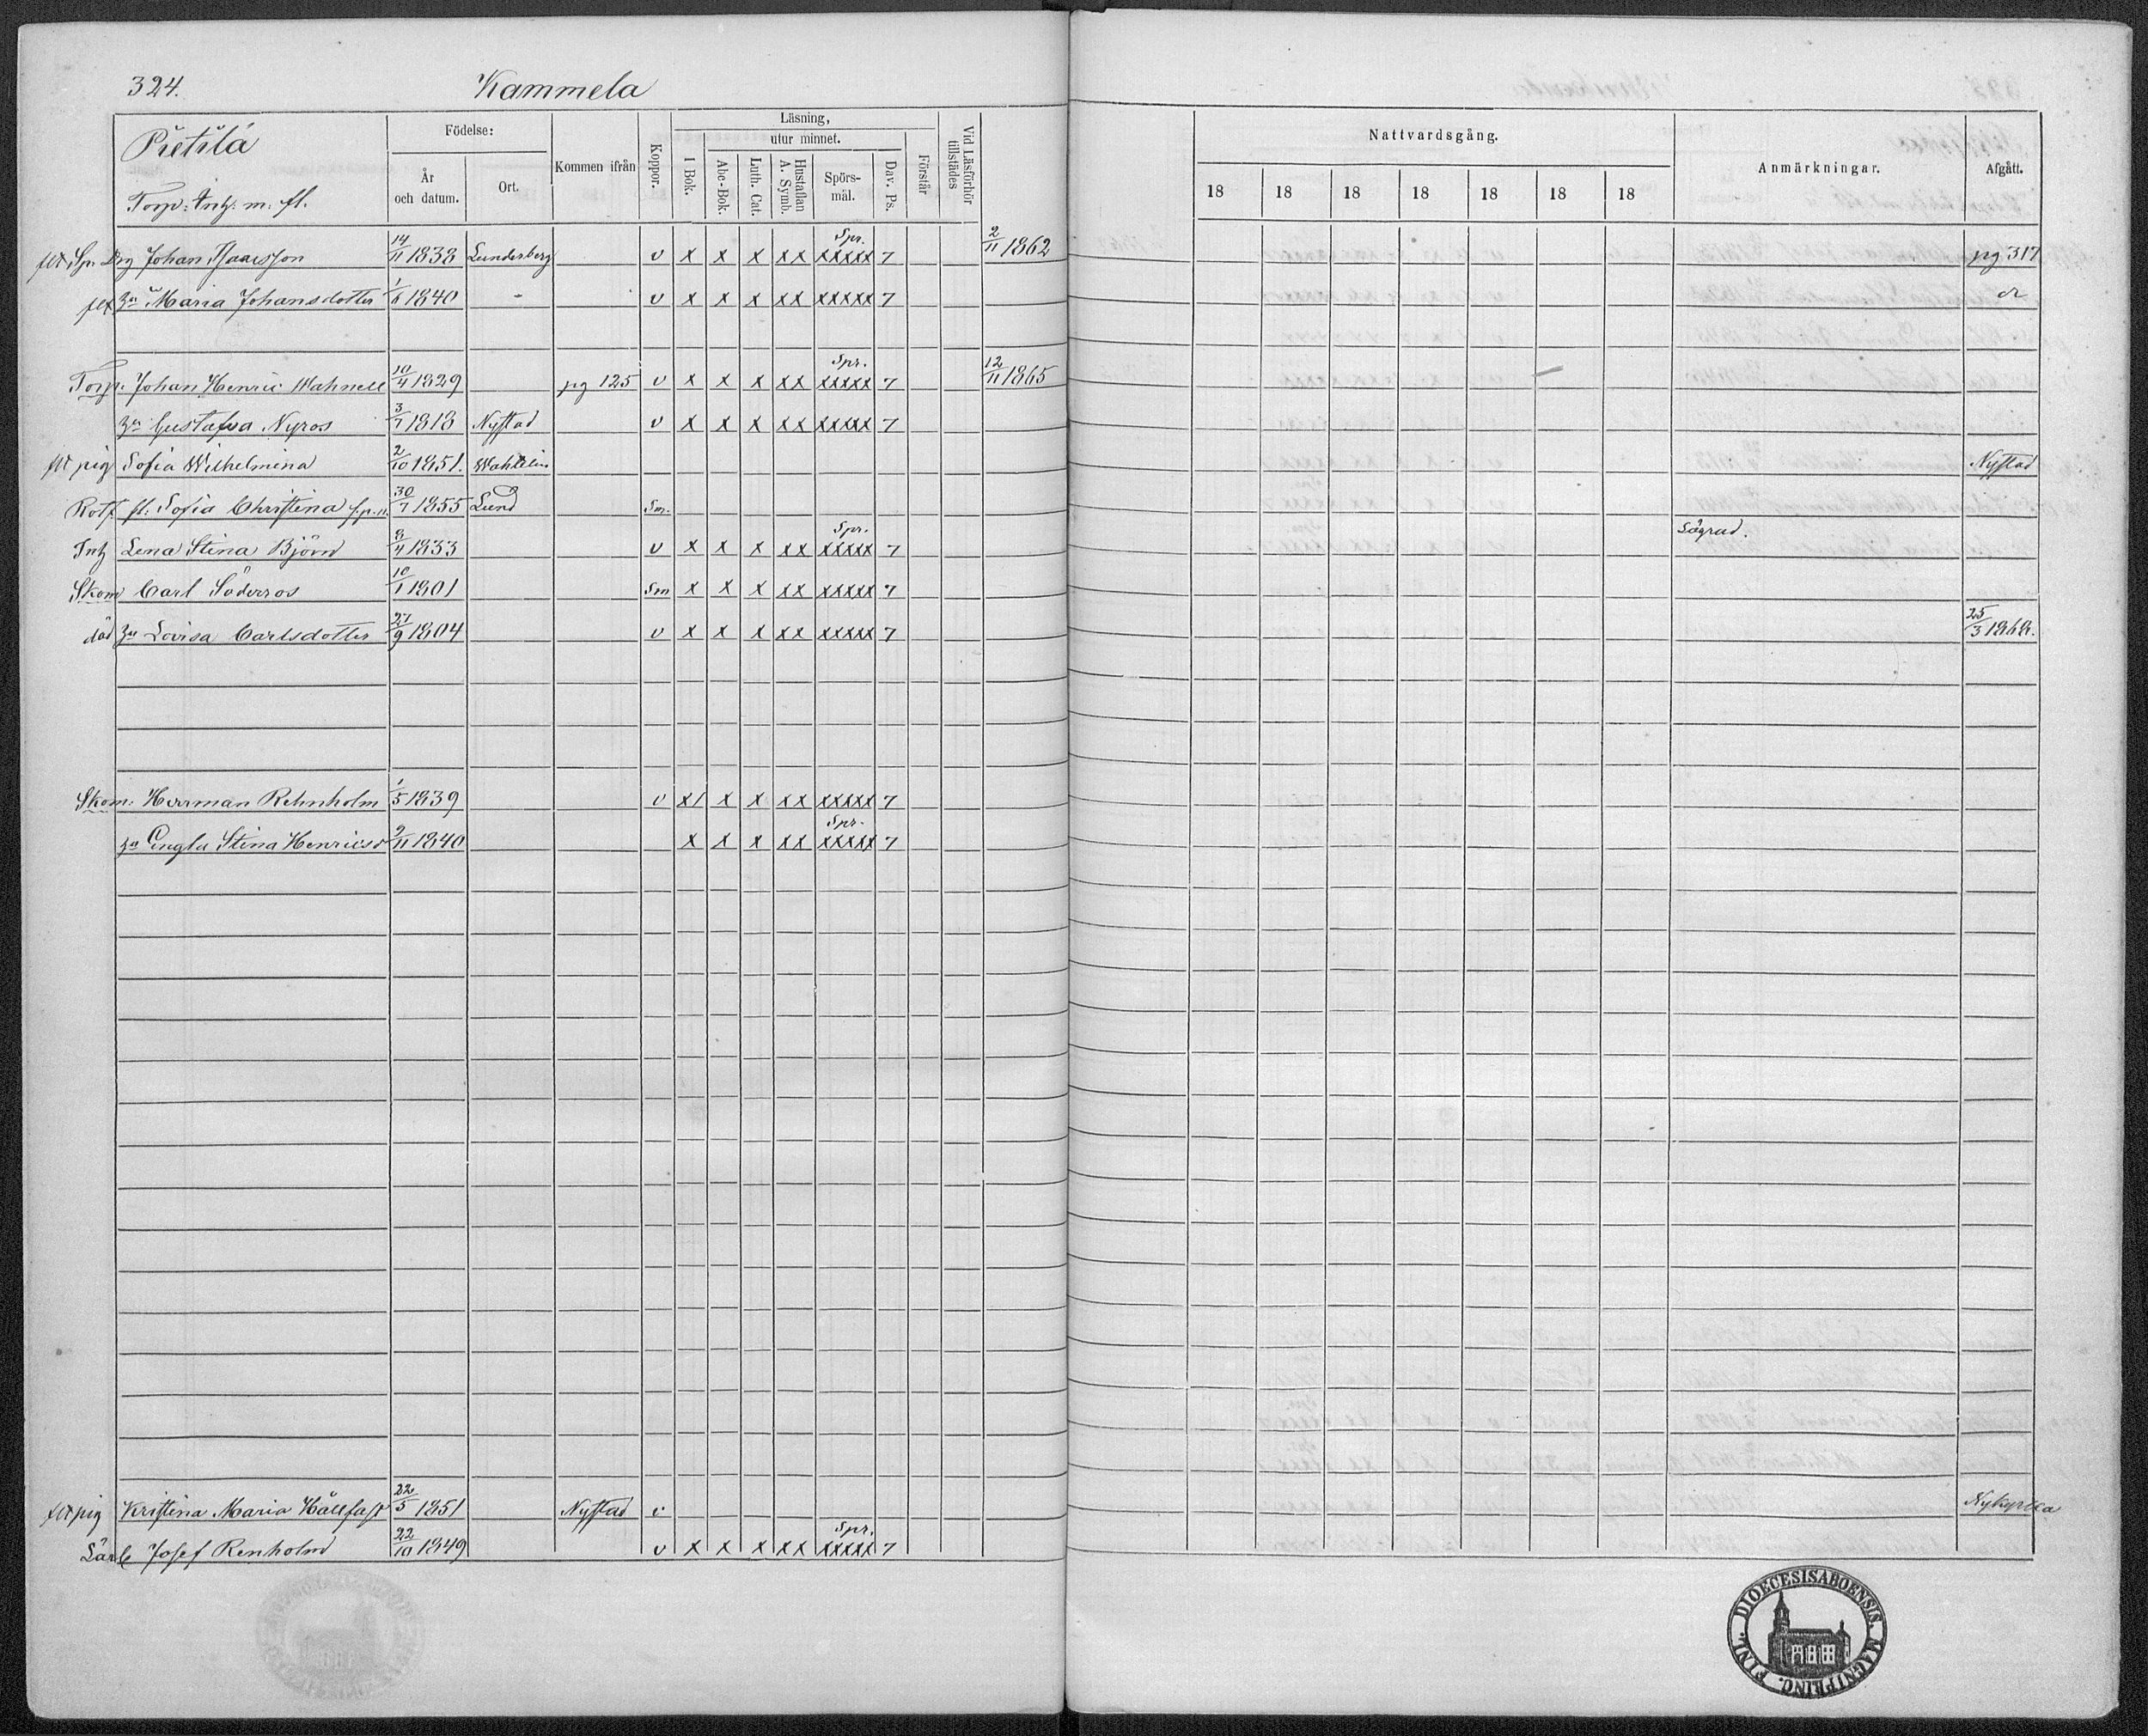 324. Kammela
Pietilä
Torp: Inh: m: fl.
Födelse:
År och datum.
Ort.
Kommen ifrån
Koppor.
Läsning,
I Bok.
utur minnet.
Abc-Bok.
Luth. Cat.
Hustaflan A. Symb.
Spörs-mål.
Dav. Ps.
Förstår
Vid Läsförhör tillstädes
Nattvardsgång.
18 18 18 18 18 18 18
Anmärkningar.
Afgått.
flt Sp. Drg Johan Isaacsson 14/11 1838 Lundsberg v x x x xx Spr. xxxxx 7 2/11 1862 pg 317
flt hu Maria Johansdotter 1/6 1840 - v x x x xx xxxxx 7
Torp. Johan Henric Wahnell 10/4 1829 pg 125 v x x x xx Spr. xxxxx 7 12/11 1865
hu Gustafva Nyros 3/7 1818 Nystad v x x x xx xxxxx 7
flt pig Sofia Wilhelmina 2/10 1851. Nystad
Rotf fl. Sofia Christina 30/7 1855 Lund Sm.
Inh Lena Stina Björn 8/4 1833 v x x x xx Spr. xxxxx 7 Lägrad.
Skom Carl Söderros 10/1 1801 Sm x x x xx xxxxx 7
död hu Lovisa Carlsdotter 27/9 1804 v x x x xx xxxxx 7 25/3 1868.
Skom: Herrman Rehnholm 1/5 1839 v x/ x x xx xxxxx 7
hu Engla Stina Henricsd 9/11 1840 x x x xx Spr. xxxxx 7
flt pig Kristina Maria Hållfast 22/5 1851 Nystad v Nykyrka
Lärl Josef Renholm 22/10 1849 v x x x xx Spr. xxxxx 7
DIOECESIS ABOENSIS. MAGNI PRINC. FINL.